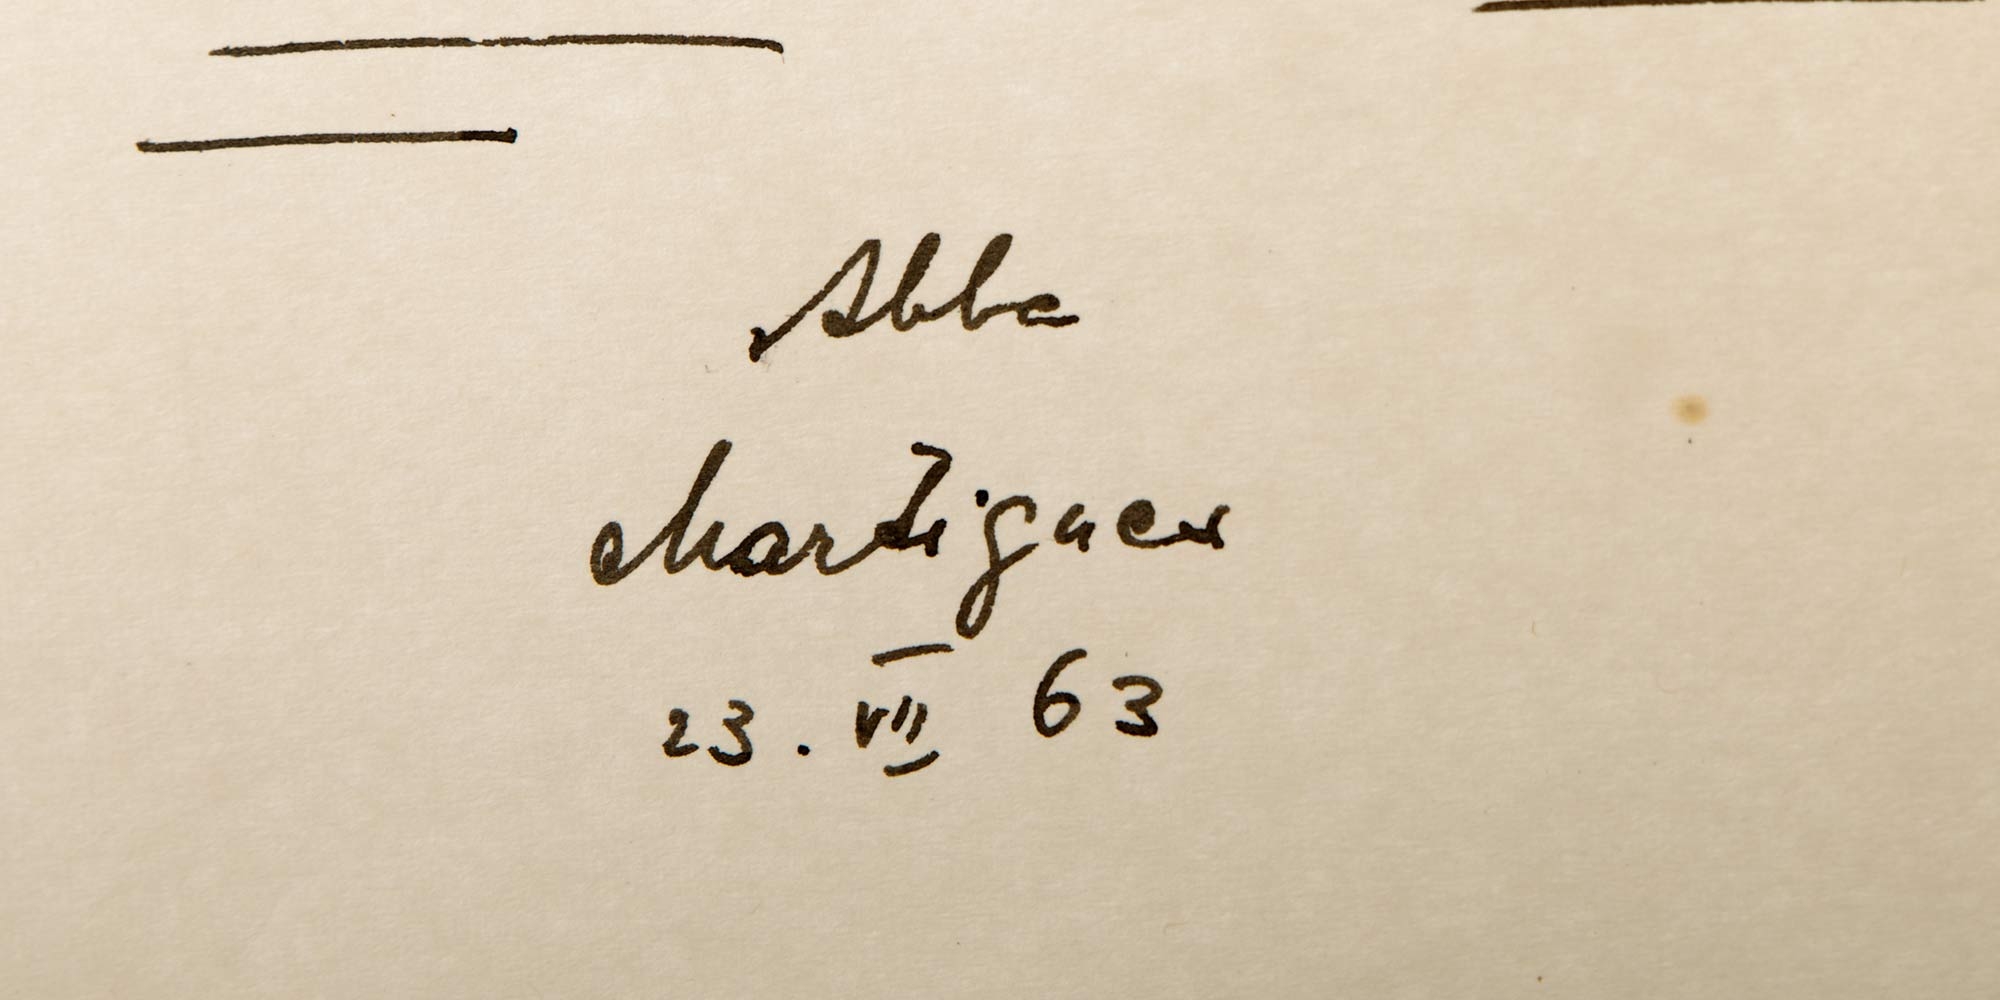 Abbe
Martigues
23. VII 63